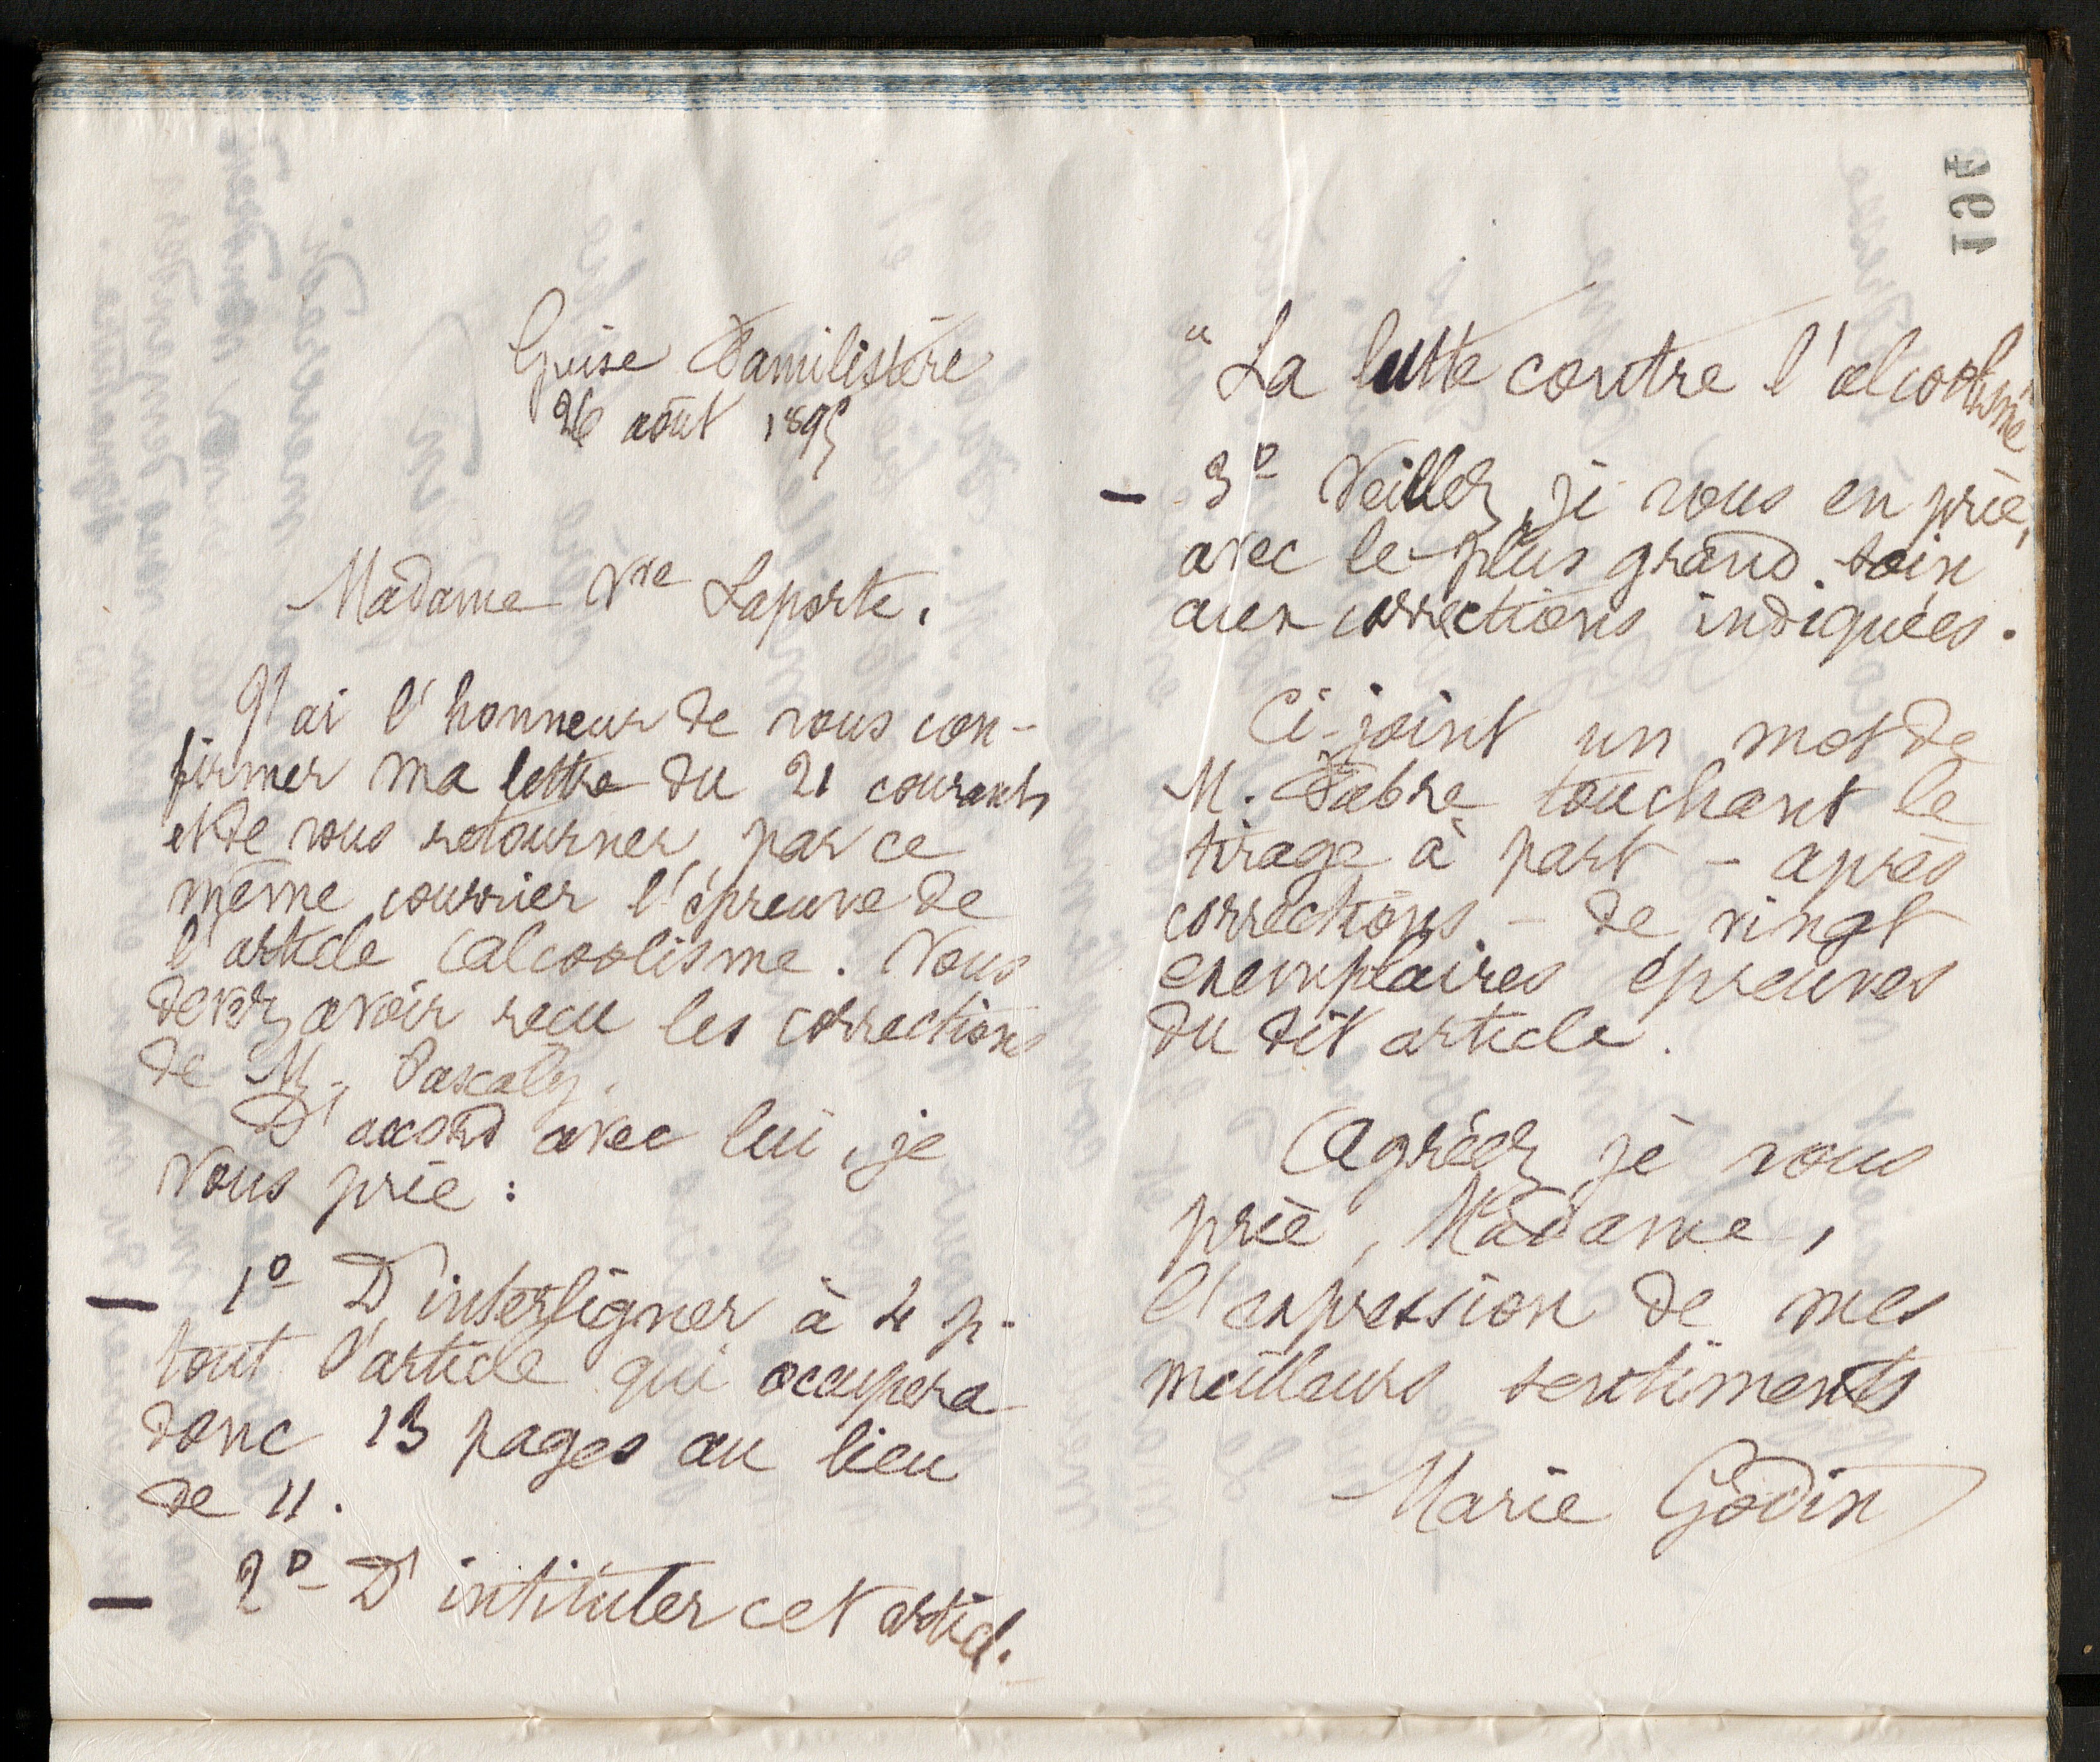 Guise Familistère
26 août 1895
Madame Vve Laporte,
J'ai l'honneur de vous con-
firmer ma lettre du 21 courant,
et de vous retourner, par ce
même courrier l'épreuve de
l'article alcoolisme. Vous
devez avoir reçu les corrections
de M. Pascaly.
D'accord avec lui, je
vous prie :
— 1º D'interligner à 4 p.
tout l'article qui occupera
donc 13 pages au lieu
de 11.
— 2º D'intituler cet articl.
194
"La lutte contre l'alcoolisme"
— 3º Veillez, je vous en prie,
avec le plus grand soin
aux corrections indiquées.
Ci-joint un mot de
M. Fabre touchant le
tirage à part - après
corrections - de vingt
exemplaires épreuves
du dit article.
Agréez, je vous
prie, Madame,
l'expression de mes
meilleurs sentiments
Marie Godin